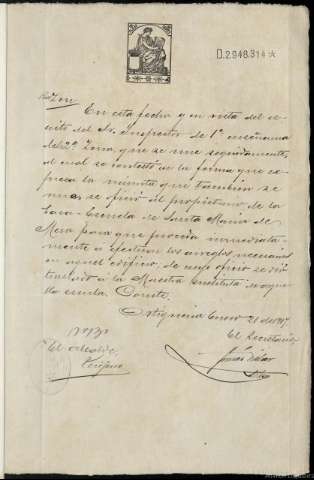 D.2.948.314★
En esta fecha y en vista del es-
crito del Sr. Inspector de 1ª enseñanza
de 2ª Zona, que se une seguidamente,
al cual se contestó en la forma que ex-
presa la minuta que tambien se
une, se ofició al propietario de la
Casa-Escuela de Santa María de
Mera para que proceda inmediata-
mente a efectuar los arreglos necesarios
en aquel edificio, de cuyo oficio se dió
traslado á la Maestra de aque-
lla escuela. Conste.
Ortigueira Enero 21 de
Vº Bº El Secretario,
El Alcalde,